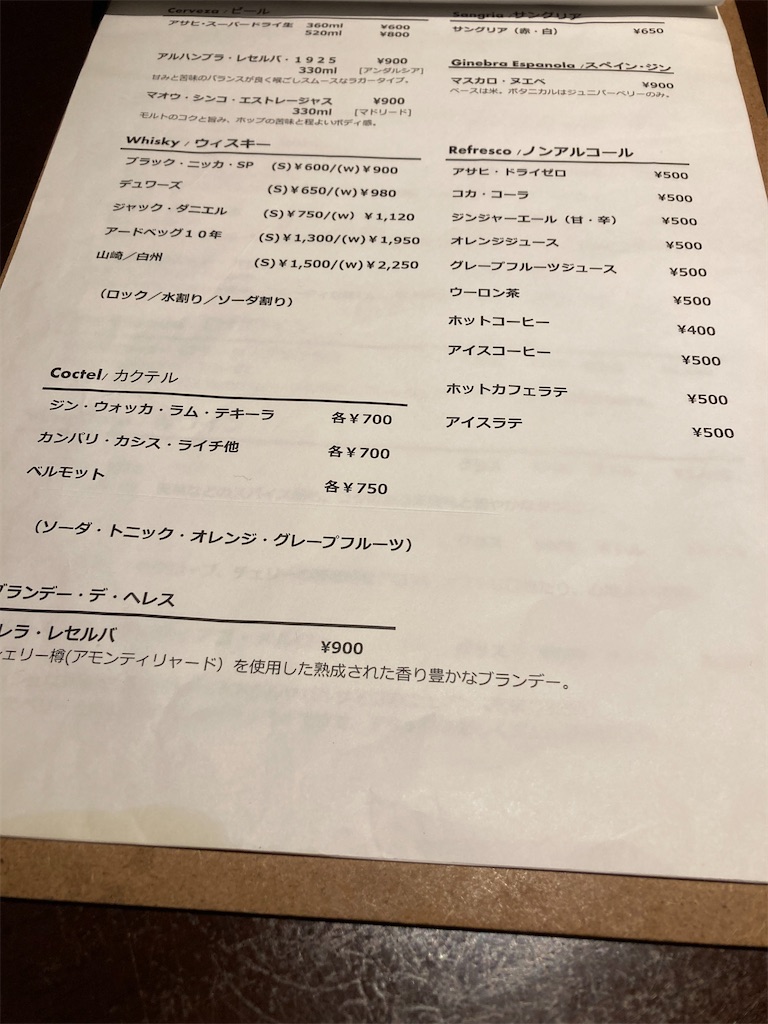 Cerveza / ビール
アサヒ・スーパードライ生 360ml ¥600
520ml ¥800
アルハンブラ・レセルバ・1925 ¥900
330ml [アンダルシア]
甘みと苦味のバランスが良く喉ごしスムースなラガータイプ。
マオウ・シンコ・エストレージャス ¥900
330ml [マドリード]
モルトのコクと旨み、ホップの苦味と程よいボディ感。
Whisky / ウィスキー
ブラック・ニッカ・SP (S)¥600/(w)¥900
デュワーズ (S)¥650/(w)¥980
ジャック・ダニエル (S)¥750/(w) ¥1,120
アードベッグ10年 (S)¥1,300/(w)¥1,950
山崎／白州 (S)¥1,500/(w)¥2,250
（ロック／水割り／ソーダ割り）
Coctel/ カクテル
ジン・ウォッカ・ラム・テキーラ 各¥700
カンパリ・カシス・ライチ他 各¥700
ベルモット 各¥750
（ソーダ・トニック・オレンジ・グレープフルーツ）
ブランデー・デ・ヘレス
レラ・レセルバ ¥900
ェリー樽(アモンティリャード）を使用した熟成された香り豊かなブランデー。
Sangria /サングリア
サングリア（赤・白） ¥650
Ginebra Espanola /スペイン・ジン
マスカロ・ヌエベ ¥900
ベースは米。ボタニカルはジュニパーベリーのみ。
Refresco /ノンアルコール
アサヒ・ドライゼロ ¥500
コカ・コーラ ¥500
ジンジャーエール（甘・辛） ¥500
オレンジジュース ¥500
グレープフルーツジュース ¥500
ウーロン茶 ¥500
ホットコーヒー ¥400
アイスコーヒー ¥500
ホットカフェラテ ¥500
アイスラテ ¥500